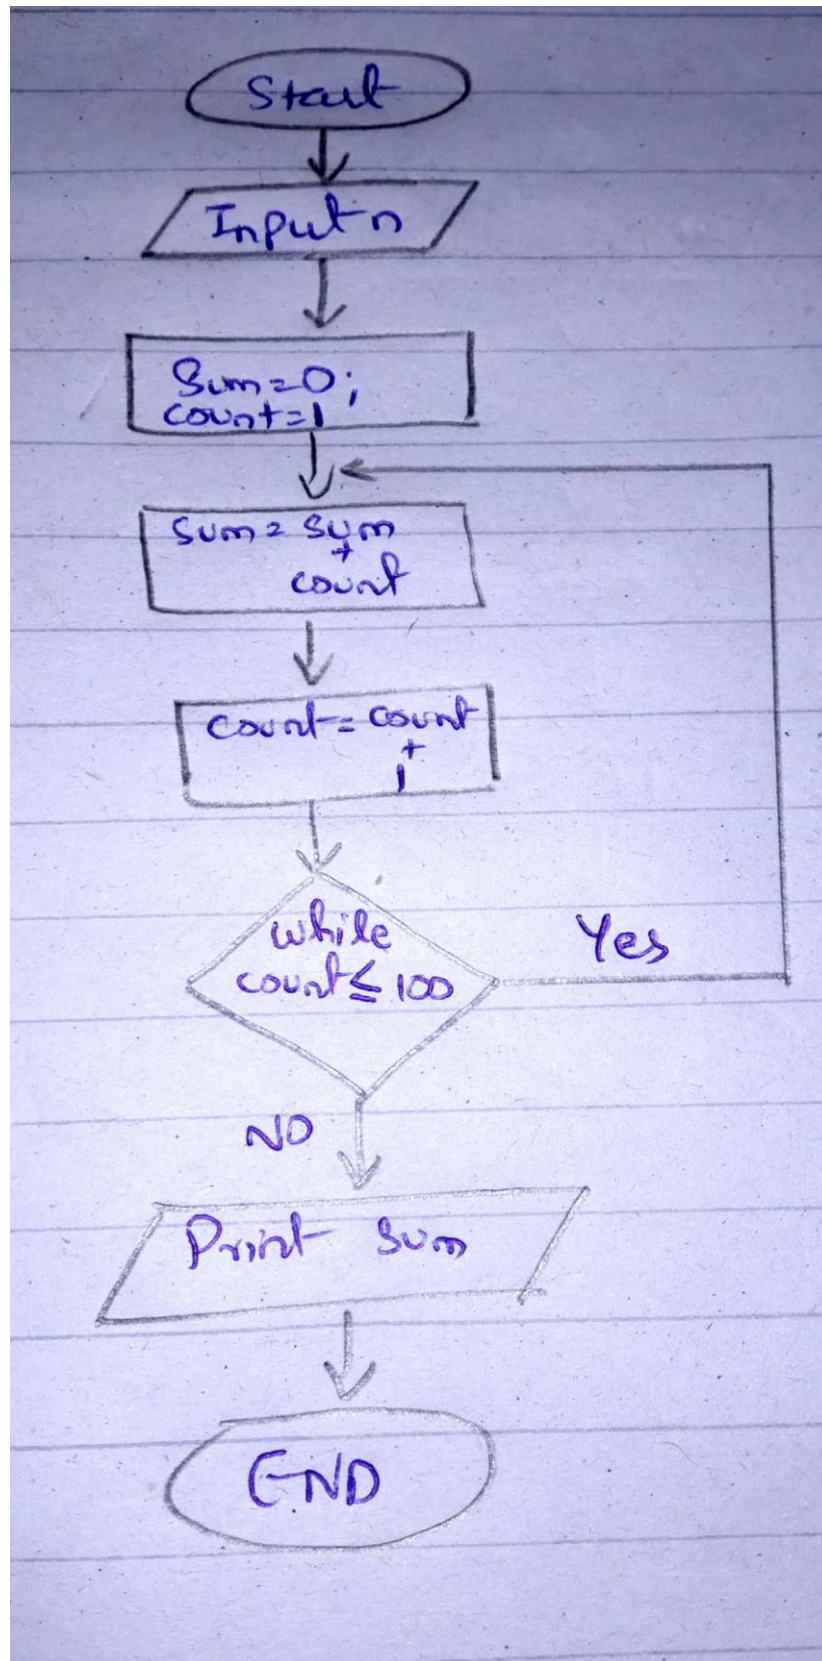 Start
Input n
Sum=0;
count=1
Sum = Sum
+
count
count = count
+
1
while
count ≤ 100
Yes
NO
Print Sum
END